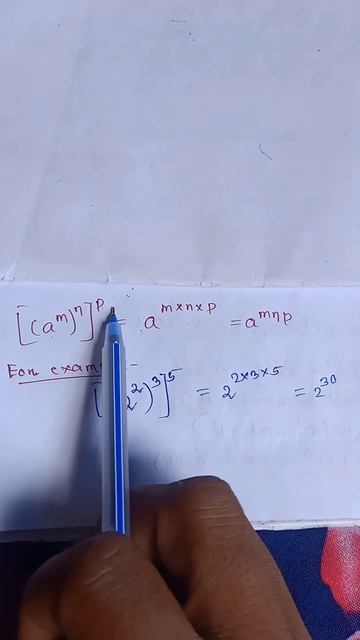 [(aᵐ)ⁿ]ᵖ = a^{m×n×p} = a^{mnp}
For exam
2²)³]⁵ = 2^{2×3×5} = 2³⁰